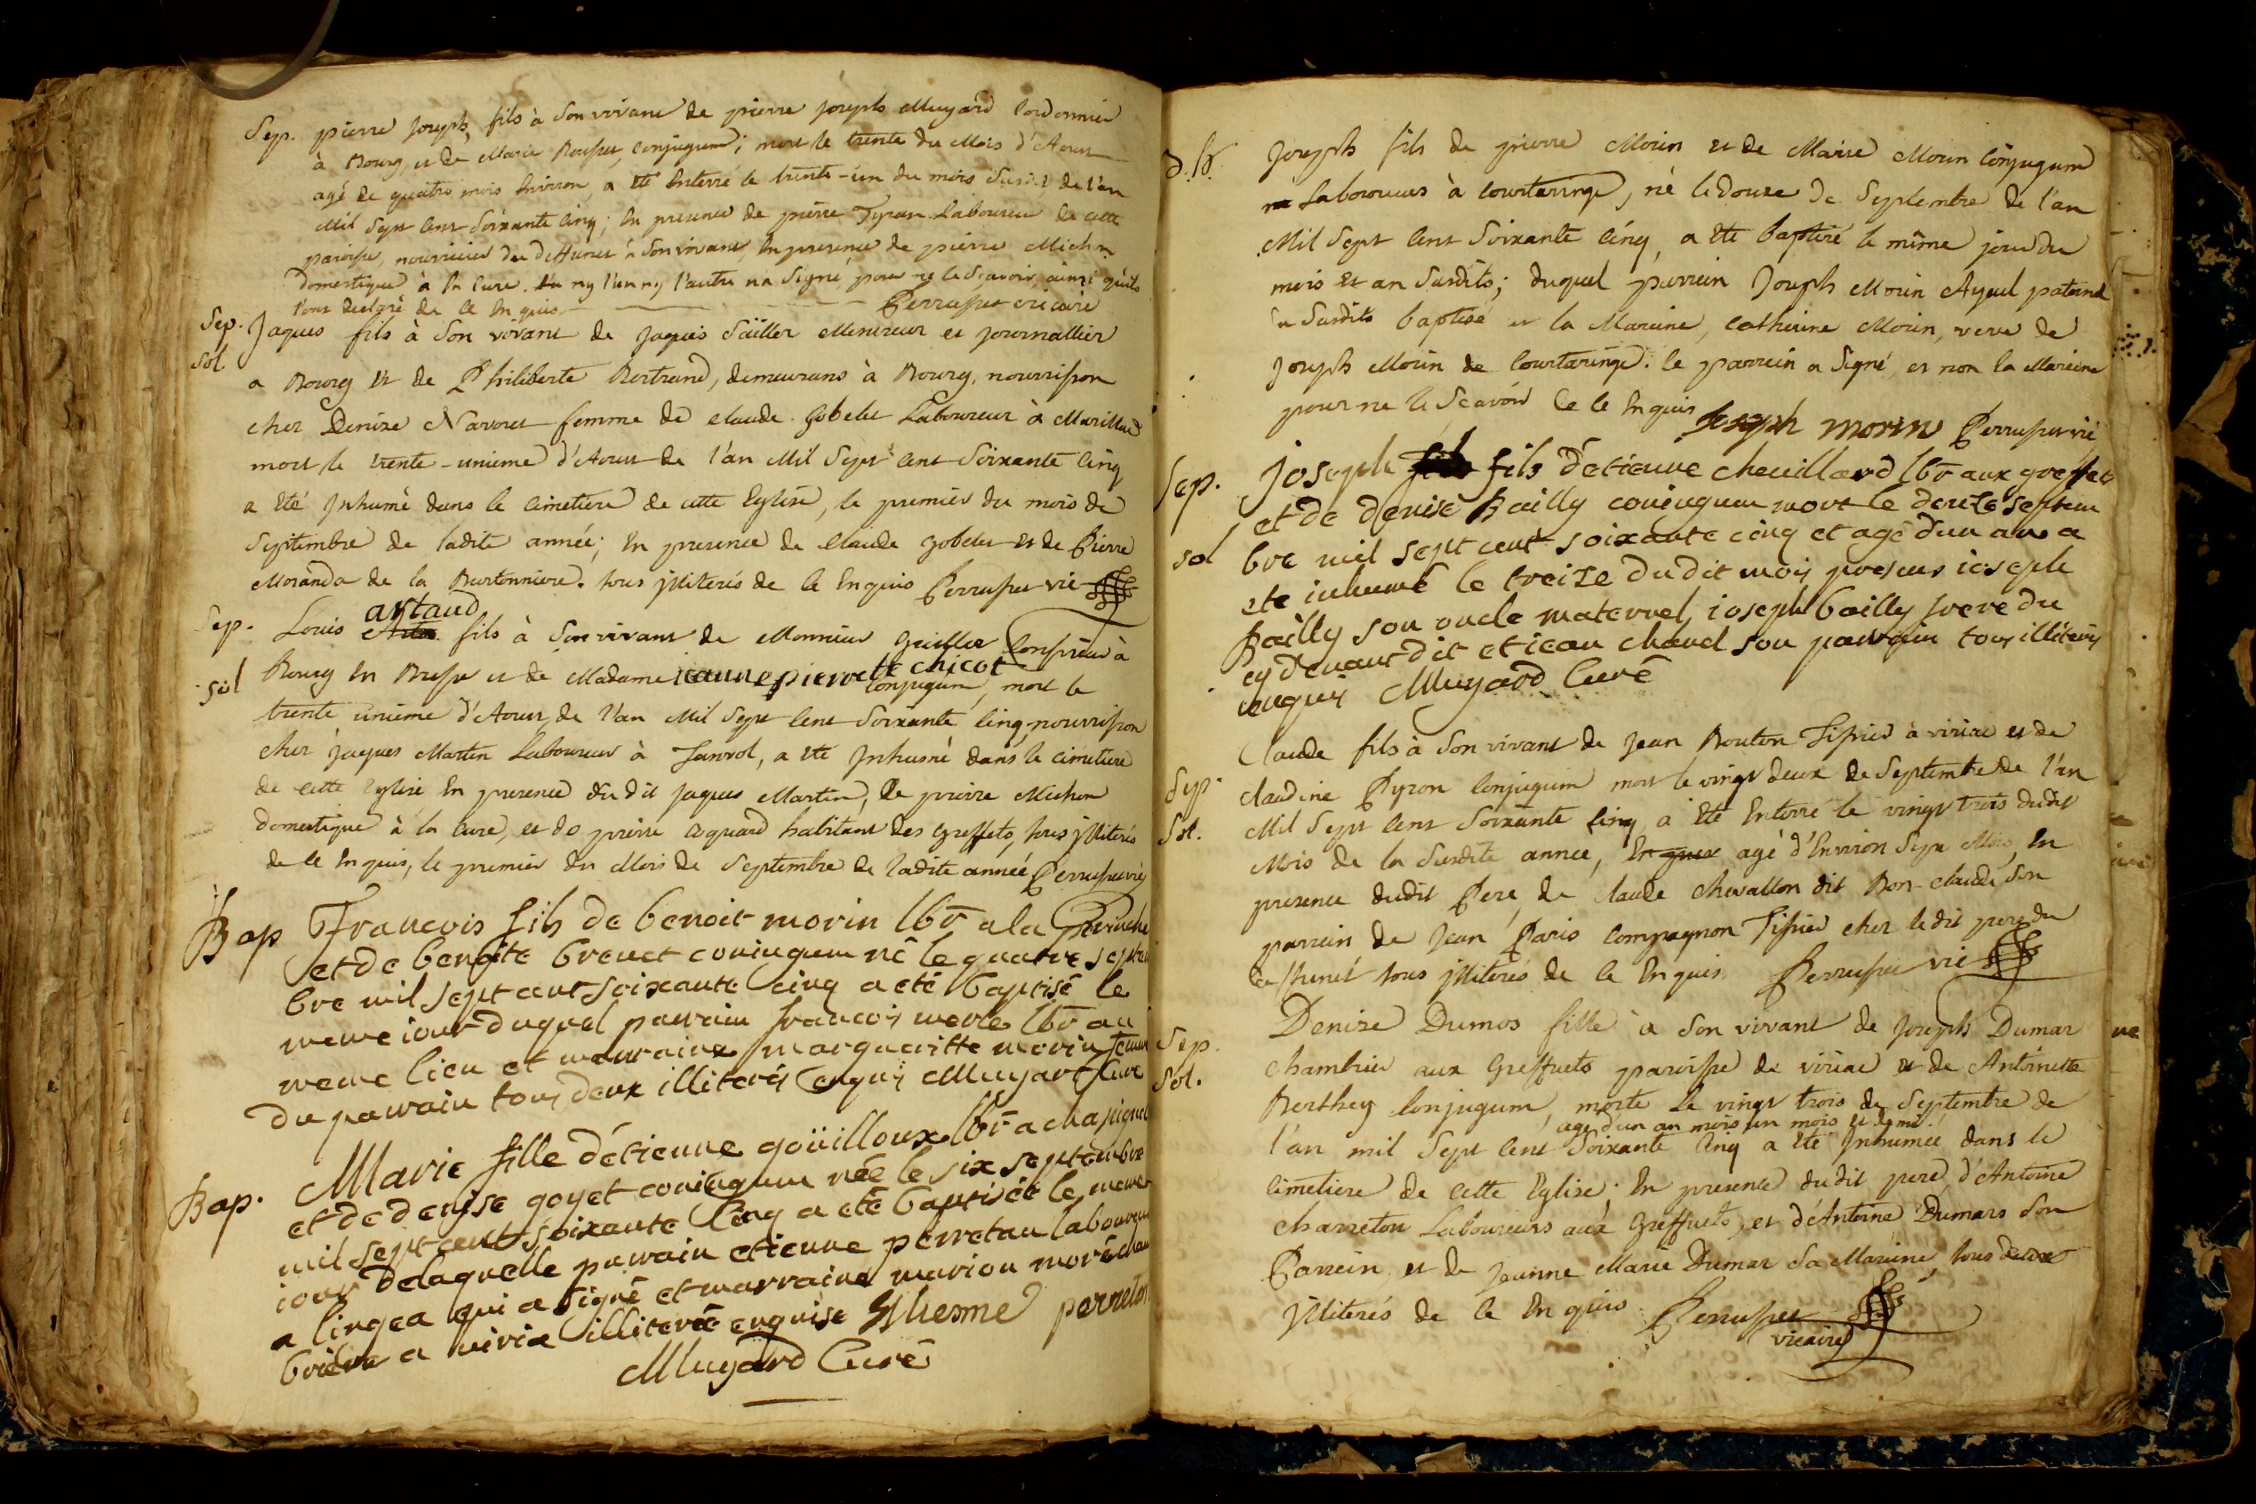 Sep. pierre Joseph, fils à Son vivant de pierre Joseph Muyard Cordonnier
à Bourg, et de Marie conjugum; mort le trente du Mois d'Aoust
agé de quatre mois Environ, a été Enterré le trente-un du mois Susdit de l'an
Mil Sept Cent Soixante Cinq; En presence de pierre Tyran Laboureur de cette
paroisse, nourricier du deffunct à Son vivant, En presence de pierre Michon
Domestique à la Cure. ny l'un ny l'autre n'a Signé pour ne le Scavoir, ainsi qu'ils
l'ont declaré de ce Enquis Perrusset vicaire
Sep. Jaques fils à Son vivant de Jaques Saïller et journallier
sol
a Bourg et de Philiberte Bertrand, demeurans à Bourg, nourrisson
chez Denize Navoret femme de Claude Gobelet Laboureur à
mort le trente-unieme d'Aoust de l'an Mil Sept Cent Soixante Cinq
a été Inhumé dans le Cimetiere de cette Eglise, le premier du mois de
Septembre de ladite année; En presence de Claude Gobelet et de Pierre
Moranda de la Bertonniere. tous jlliterés de ce Enquis Perrusset vic
Sep. Louis artaud fils à Son vivant de Monsieur à
sol Bourg En Bresse et de Madame jeanne pierrette chicot
Conjugum, mort le
trente unieme d'Aoust, de l'an Mil Sept Cent Soixante Cinq nourrisson
chez Jaques Martin Laboureur à , a été Inhumé dans le Cimetiere
de cette Eglise En presence dudit Jaques Martin, de pierre Michon
domestique à la Cure, et de pierre habitant des Greffets, tous jlliterés
de ce Enquis, le premier du Mois de Septembre de ladite année Perrusset vic
Bap Francois fils de benoit morin lbr a la
et de benoite brevet coniugum né le quatre septem
bre mil sept cent soixante cinq a eté baptisé le
meme iour duquel parrain francois merle lbr au
meme lieu et marraine margueritte morin femme
du parrain tous deux illiterés enquis Muyard Curé
Bap. Marie fille d'étienne goüilloux lbr a
et de denise goyet coniugum née le six septembre
mil sept cent soixante cinq a eté baptisée le meme
iour de laquelle parrain etienne perretan laboureur
a lingea qui a signé et marraine marion
a viria illiterée enquise Ethesme perreton
Muyard Curé
Joseph fils de pierre Morin et de Marie Morin Conjugum
Laboureurs à Courtaringe, né le douze de Septembre de l'an
Mil Sept Cent Soixante Cinq, a été baptizé le même jour du
mois et an Susdits; duquel parrein Joseph Morin Ayeul paternel
du Susdit baptisé et la Mareine, Catherine Morin, veve de
Joseph Morin de Courtaringe. le parrein a Signé, et non la Mareine
pour ne le Scavoir de ce Enquis Joseph morin Perrusset vic
Sep. Joseph fils fils d'etienne cheuillard lbr aux greffets
et de denise Bailly coniugum mort le douze septem
sol bre mil sept cent soixante cinq et agé d'un an a
eté inhumé le treize dudit mois presens ioseph
Bailly son oncle maternel, ioseph bailly frere du
cy devant dit et iean chanel son parrain tous illiterés
enquis Muyard Curé
Claude fils à Son vivant de Jean Bouton Tissier à viriac et de
Sep. Claudine Pyron Conjugum mort le vingt deux de Septembre de l'an
Sol. Mil Sept Cent Soixante Cinq a été Enterré le vingt trois dudit
Mois de la Susdite année, agé d'Environ Sept Mois, En
presence dudit Pere, de Claude Chevallon dit Bon-claude, Son
parrein, de Jean Paris Compagnon Tissier chez ledit pere du
deffunct tous jlliterés de ce Enquis Perrusset vic
Sep. Denize Dumas fille a Son vivant de Joseph Dumar
Sol. Chambrier aux Greffuets paroisse de viriac et de Antoinette
Berthey Conjugum, morte le vingt trois de Septembre de
agé d'un an mois un mois et demi
l'an mil Sept Cent Soixante Cinq a été Inhumée dans le
Cimetiere de cette Eglise; En presence dudit pere, d'Antoine
Charreton Laboureurs aux Greffuets, et d'Antoine Dumars Son
Parrein et de Jeanne Marie Dumar Sa Mareine, tous
Jlliterés de ce Enquis Perrusset
vicaire